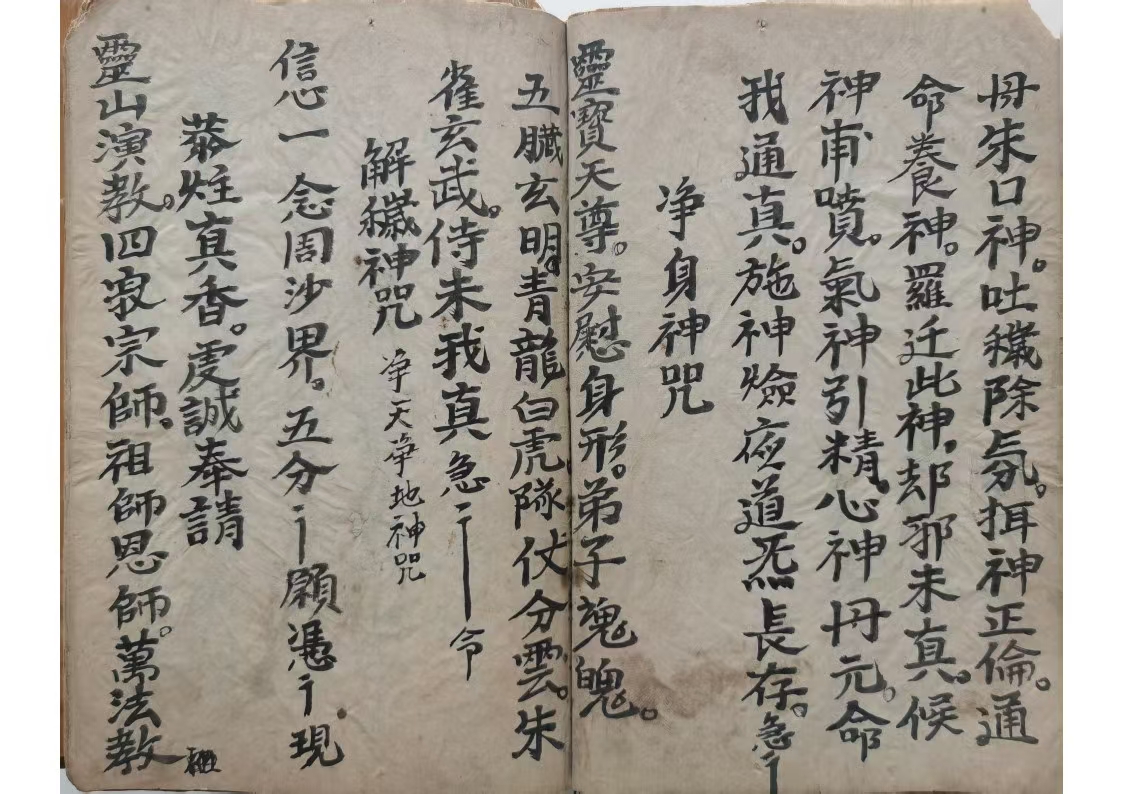 丹朱口神。吐穢除氛。揖神正倫。通
命養神。羅迁此神。却邪未真。候
神甫噴。氣神引精。心神丹元。命
我通真。施神燄夜道炁長存。急
净身神咒
靈寶天尊。安慰身形。弟子魂魄。
五臟玄明。青龍白虎隊仗分雲。朱
雀玄武。侍未我真急令
解穢神咒 净天净地神咒
信心一念周沙界。五分願憑現
恭炷真香。虔誠奉請
靈山演教。四寂宗師。祖師恩師。萬法教